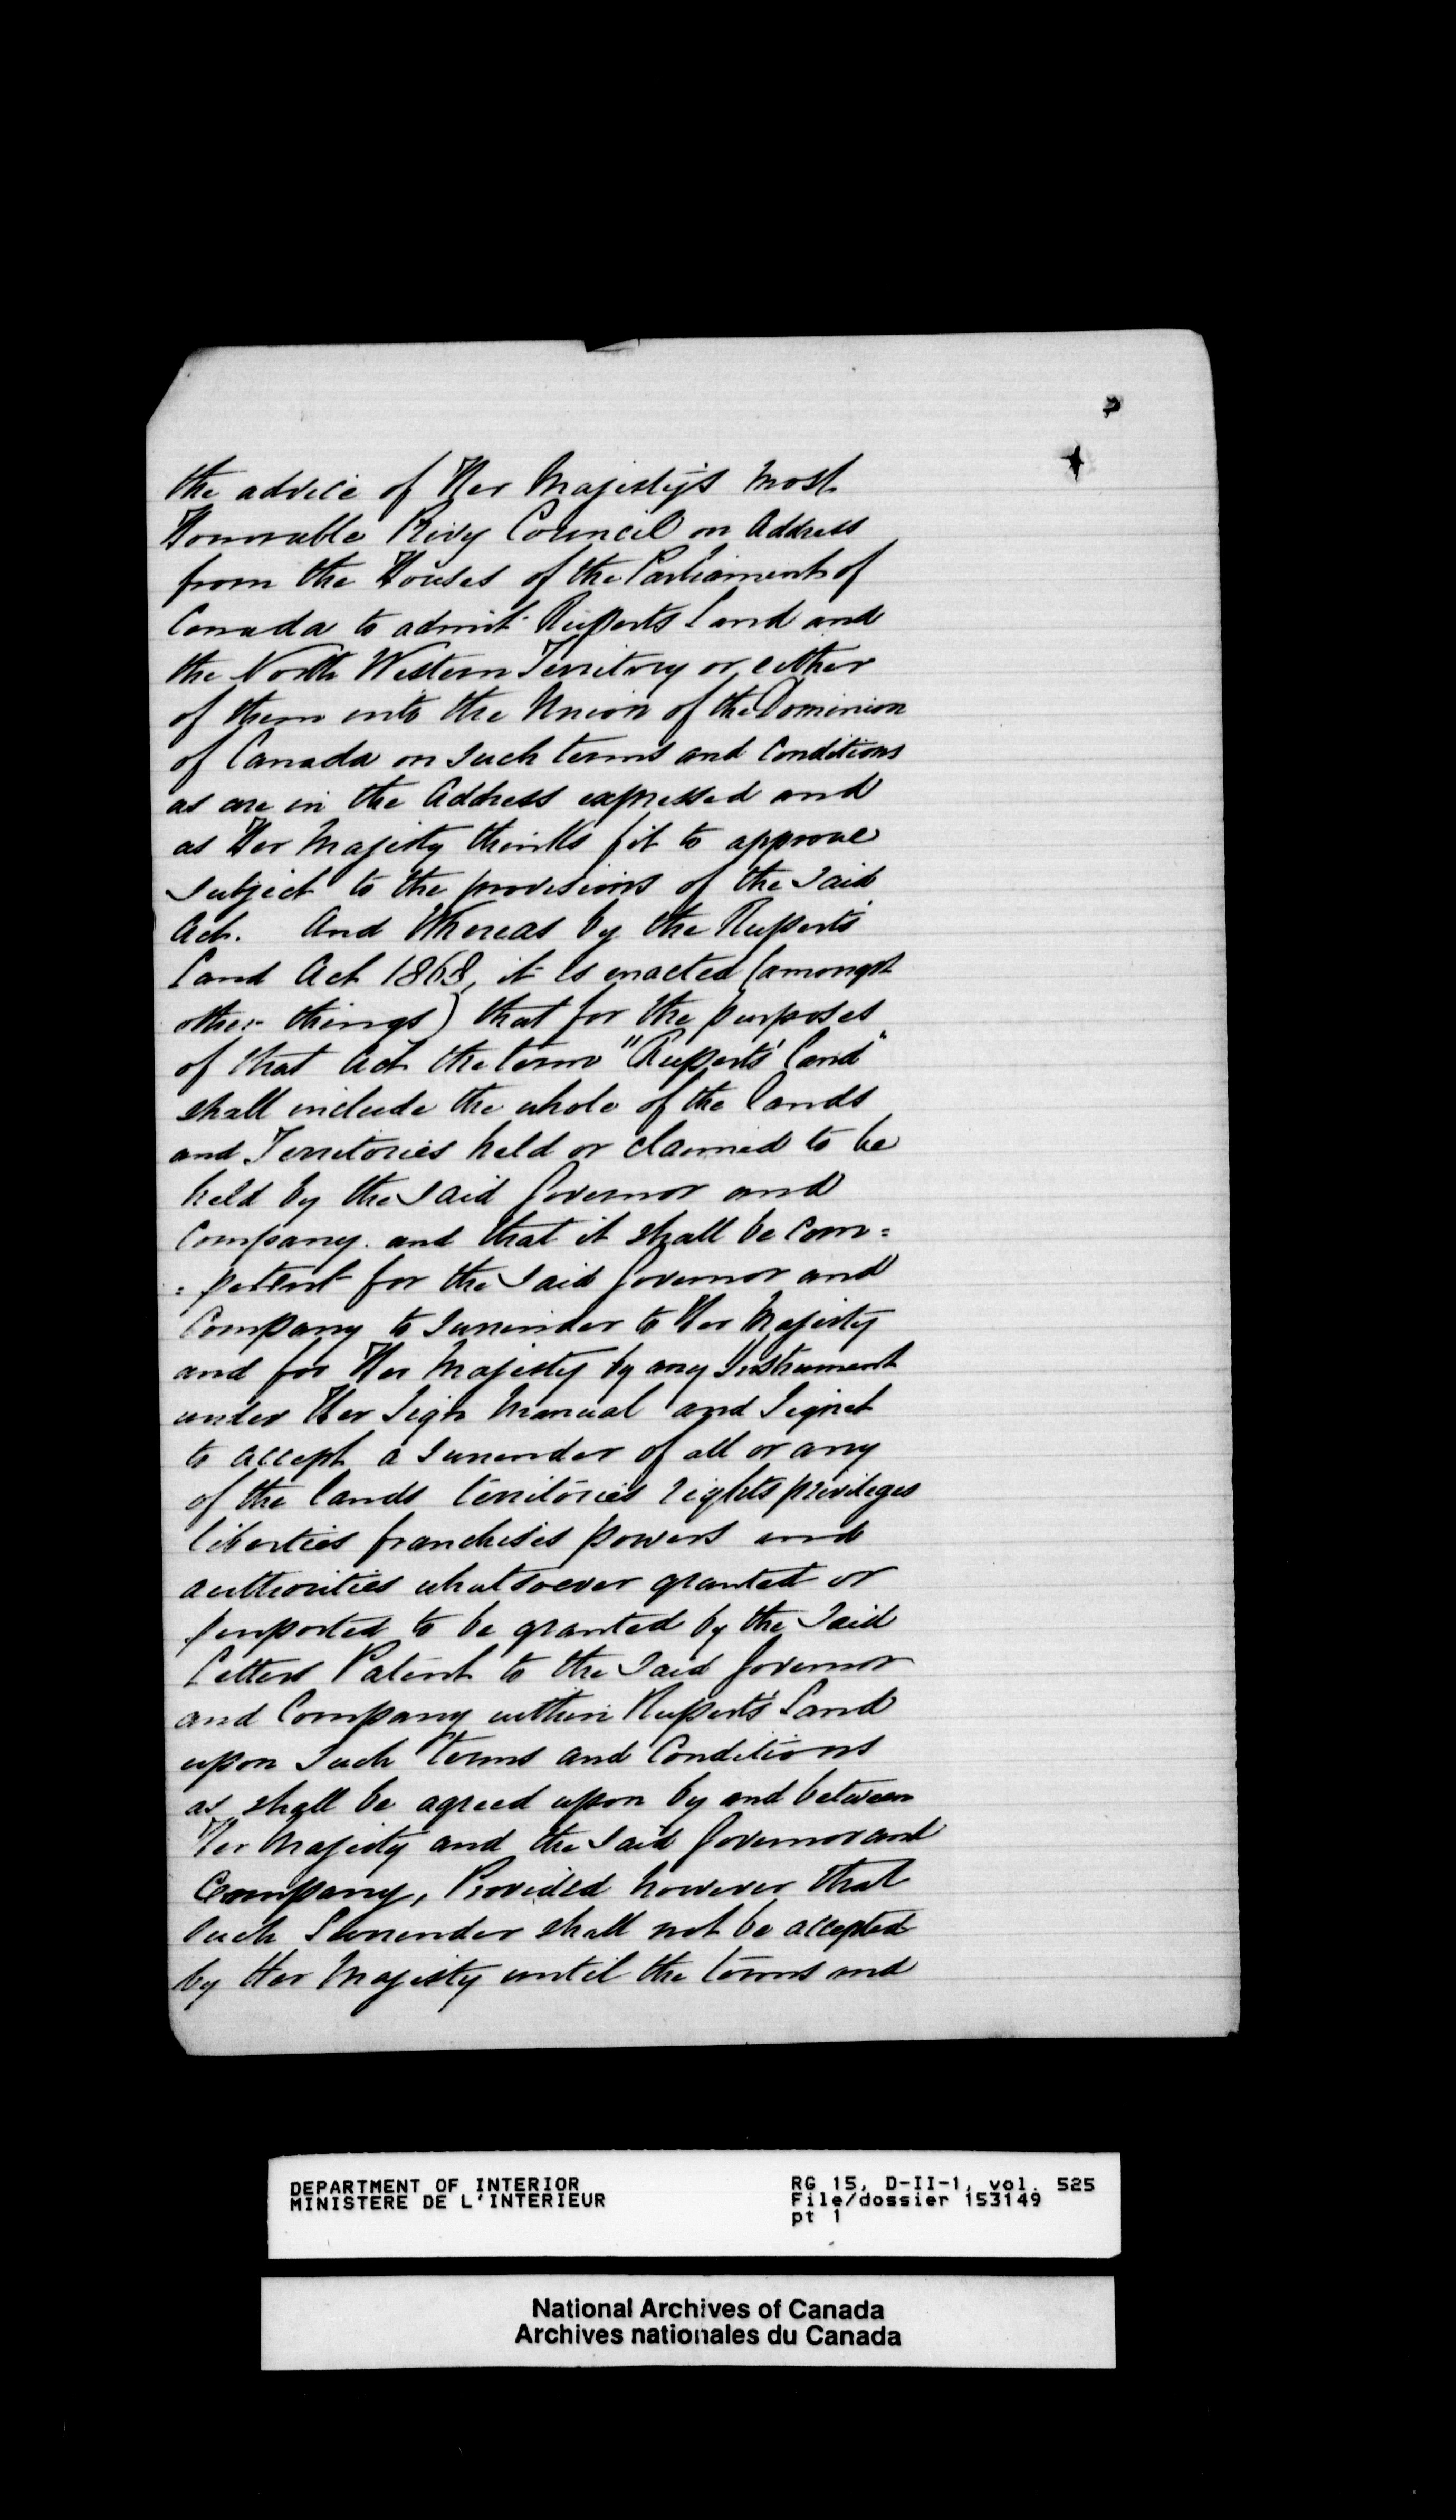 the advice of Her Majesty's most
Honorable Privy Council on Address
from the Houses of the Parliament of
Canada to admit Ruperts Land and
the North Western Territory or either
of them into the Union of the Dominion
of Canada on such terms and Conditions
as are in the Address expressed and
as Her Majesty thinks fit to approve
subject to the provisions of the said
Act. And Whereas by the Ruperts
Land Act 1868, it is enacted (amongst
other things) that for the purposes
of that Act the term "Rupert's Land"
shall include the whole of the Lands
and Territories held or claimed to be
held by the said Governor and
Company. and that it shall be com=
=petent for the said Governor and
Company to surrender to Her Majesty
and for Her Majesty by any Instrument
under Her Sign Manual and Signet
to accept a surrender of all or any
of the lands territories rights privileges
liberties franchises powers and
authorities whatsoever granted or
purported to be granted by the said
Letters Patent to the said Governor
and Company within Rupert's Land
upon such terms and Conditions
as shall be agreed upon by and between
Her Majesty and the said Governor and
Company, Provided however that
such Surrender shall not be accepted
by Her Majesty until the terms and
DEPARTMENT OF INTERIOR
MINISTERE DE L'INTERIEUR
RG 15, D-II-1, vol. 525
File/dossier 153149
pt 1
National Archives of Canada
Archives nationales du Canada